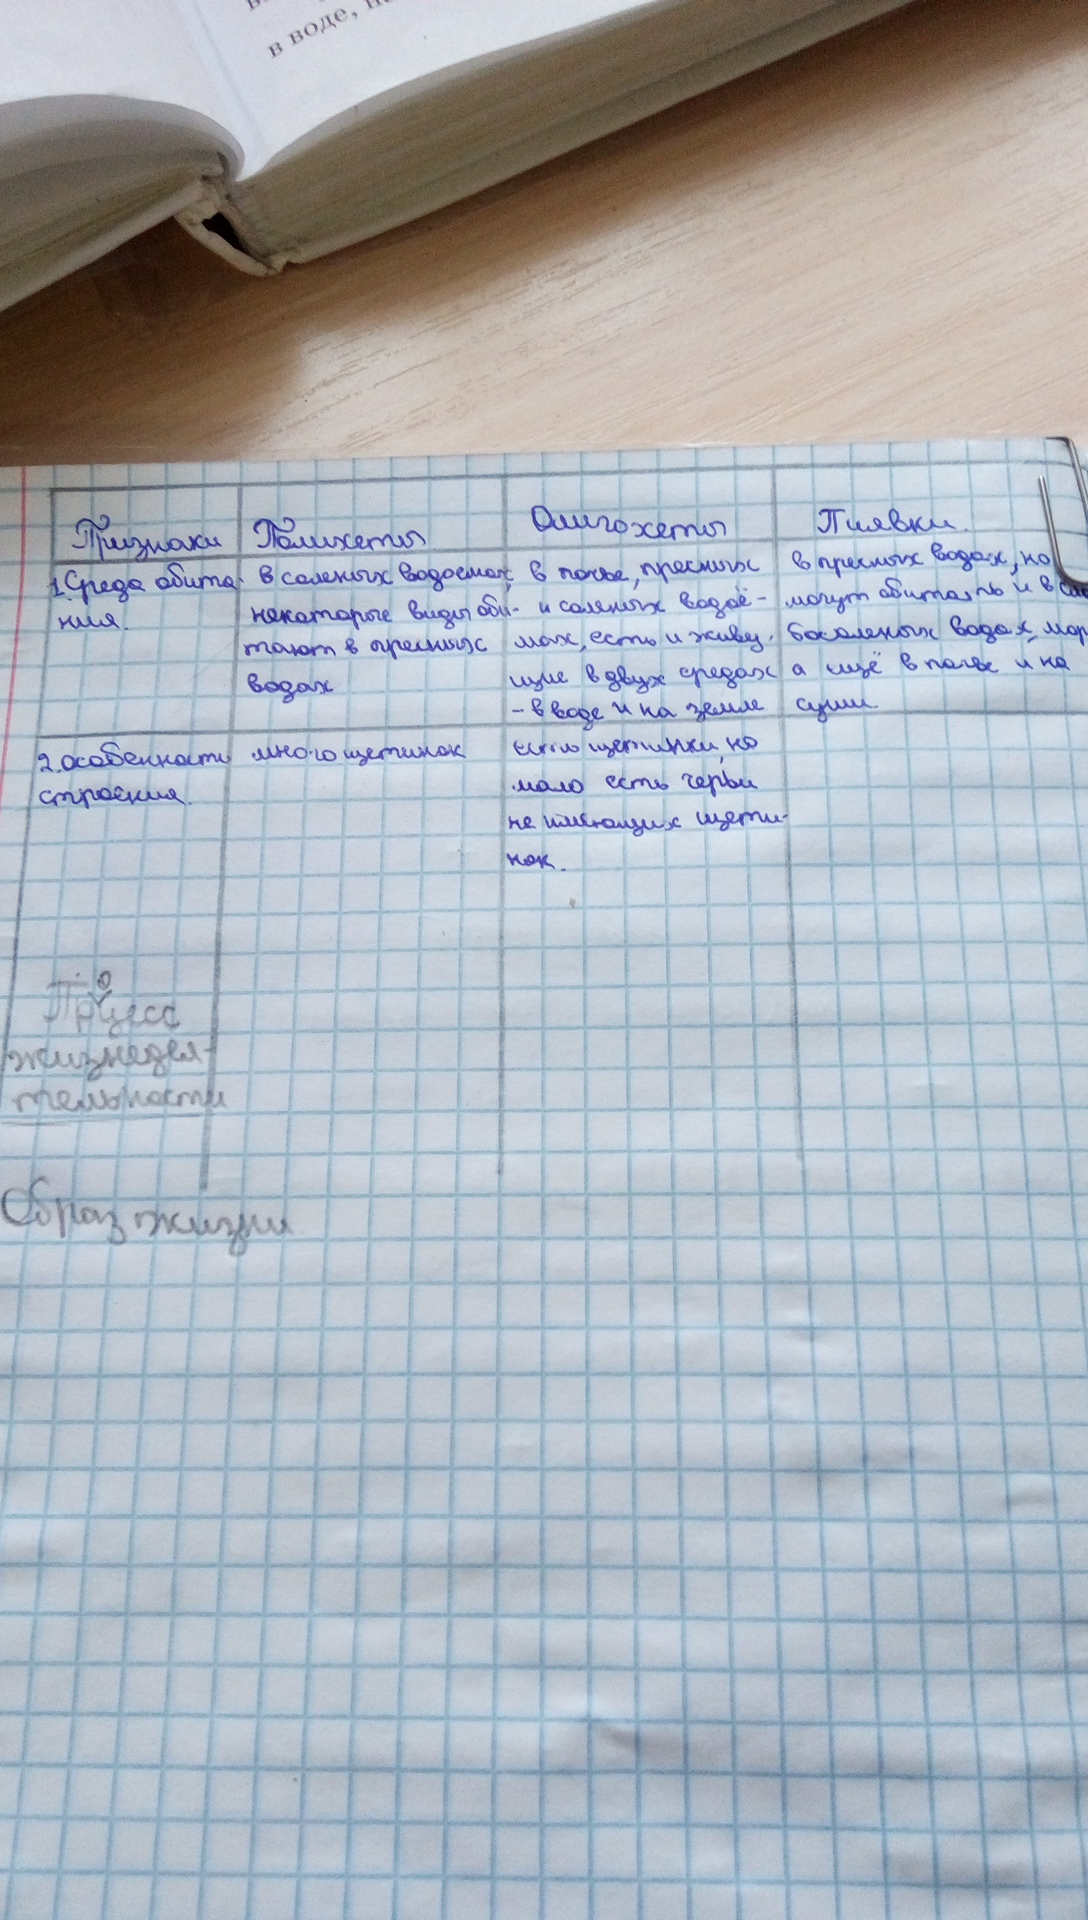 в воде, н
Признаки Полихеты Олигохеты Пиявки.
1. Среда обита-
ния.
в соленых водоемах,
некоторые виды оби-
тают в пресных
водах
в почве, пресных
и соленых водоё-
мах, есть и живу-
щие в двух средах
- в воде и на земле
в пресных водах, но
могут обитать и в сла
босоленых водах, мор
а ещё в почве и на
суши.
2. особенности
строения.
много щетинок
есть щетинки, но
мало есть черви
не имеющих щети-
нок.
Процесс
жизнедея-
тельности
Образ жизни